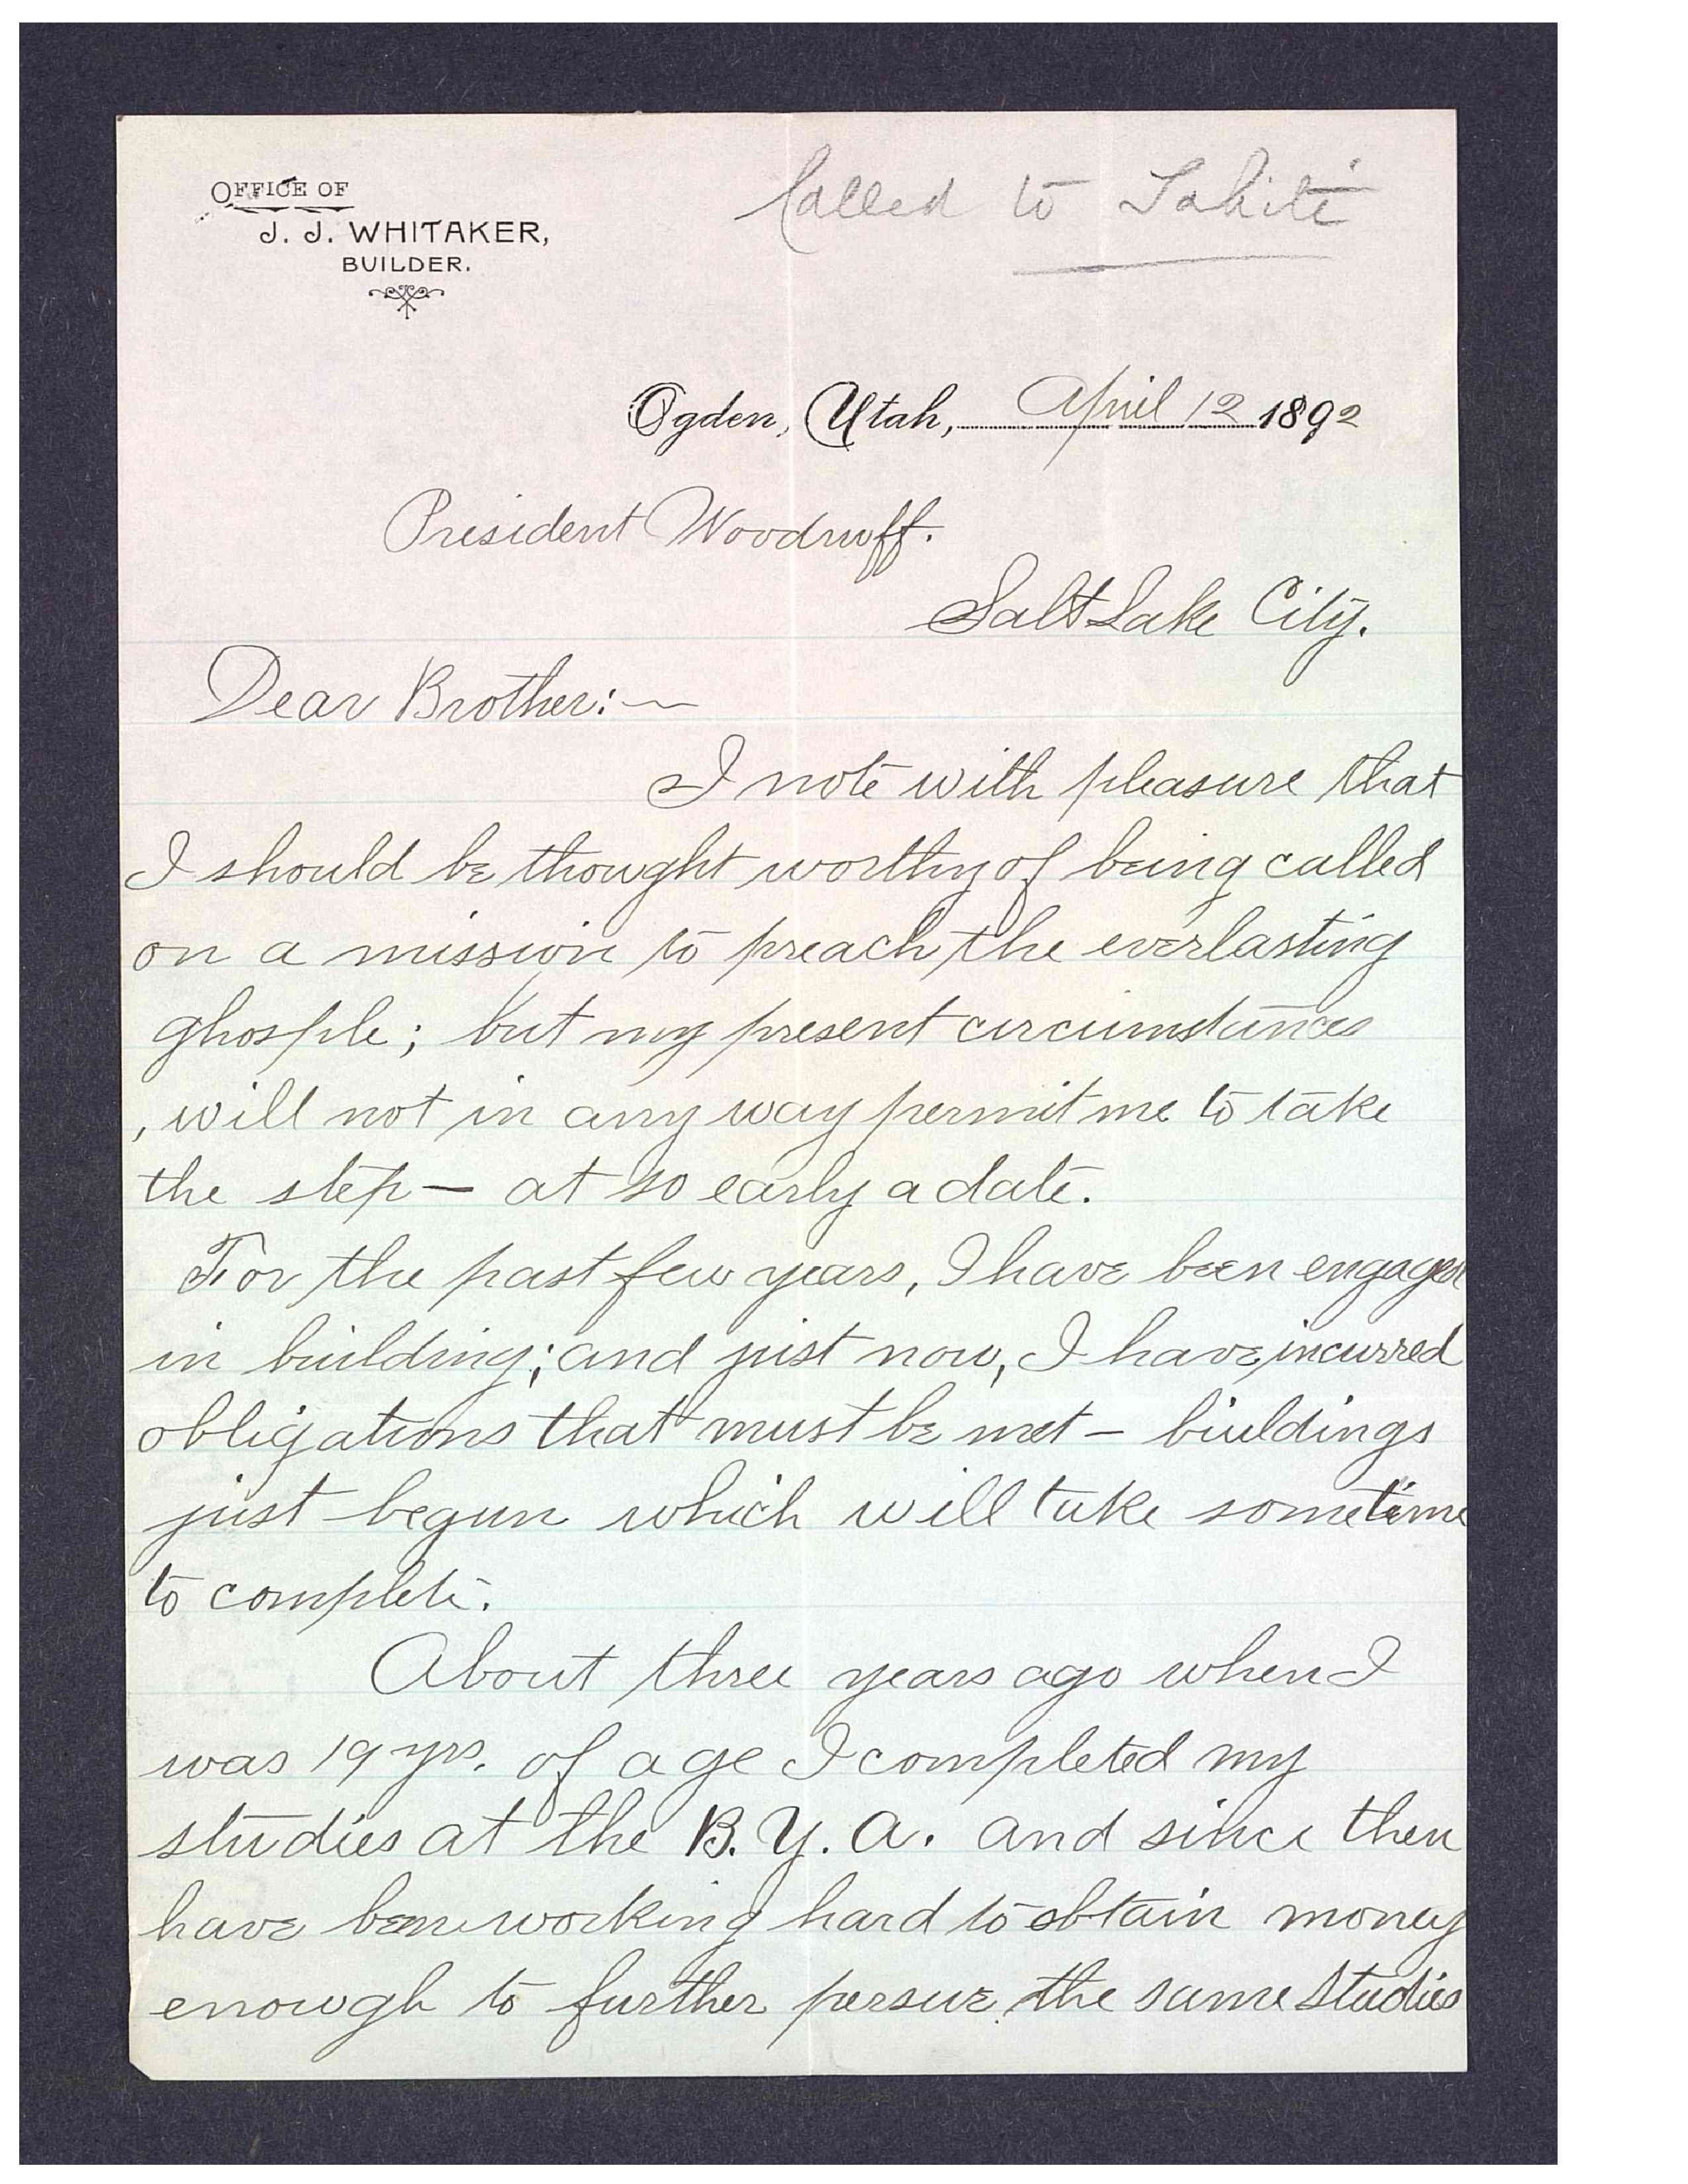 OFFICE OF
J. J. WHITAKER,
BUILDER.
Called to Tahiti
Ogden, Utah, April 12 1892
President Woodruff.
Salt Lake City.
Dear Brother:~
I note with pleasure that
I should be thought worthy of being called
on a mission to preach the everlasting
ghosple; but my present circumstances
, will not in any way permit me to take
the step — at so early a date.
For the past few years, I have been engaged
in building; and just now, I have incurred
obligations that must be met — buildings
just begun which will take sometime
to complete.
About three years ago when I
was 19 yrs. of age I completed my
studies at the B. Y. A. and since then
have been working hard to obtain money
enough to further persue the same studies